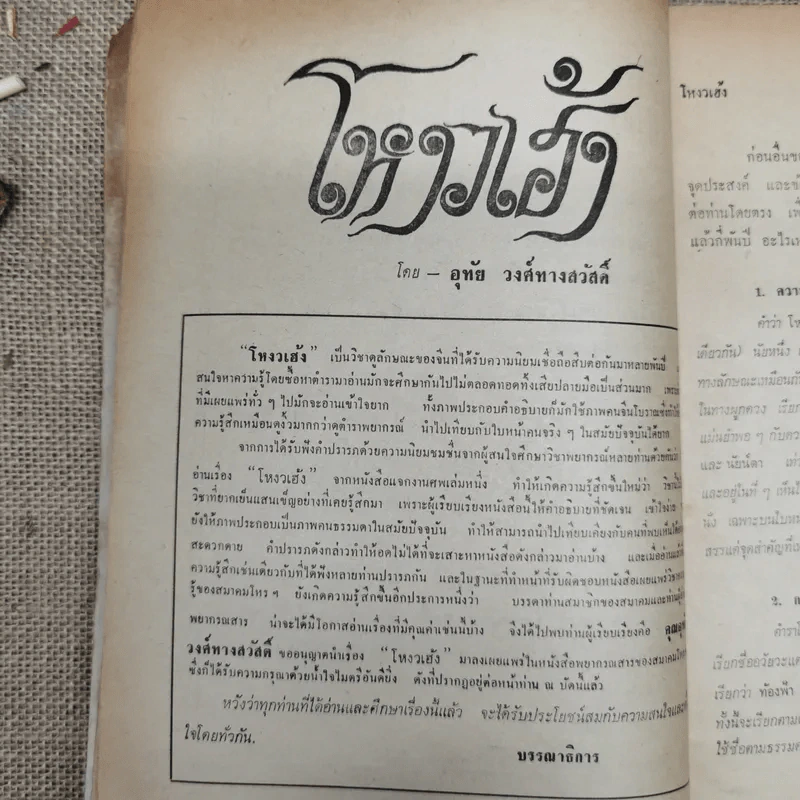 โหงวเฮ้ง
โดย – อุทัย วงศ์ทางสวัสดิ์
“โหงวเฮ้ง” เป็นวิชาดูลักษณะของจีนที่ได้รับความนิยมเชื่อถือสืบต่อกันมาหลายพันปี
สนใจหาความรู้โดยซื้อหาตำรามาอ่านมักจะศึกษากันไปไม่ตลอดทอดทิ้งเสียปลายมือเป็นส่วนมาก
ที่มีเผยแพร่ทั่ว ๆ ไปมักจะอ่านเข้าใจยาก ทั้งภาพประกอบคำอธิบายก็มักใช้ภาพคนจีนโบราณ
ความรู้สึกเหมือนดูงิ้วมากกว่าดูตำราพยากรณ์ นำไปเทียบกับใบหน้าคนจริง ๆ ในสมัยปัจจุบันได้ยาก
จากการได้รับฟังคำปรารภด้วยความนิยมชมชื่นจากผู้สนใจศึกษาวิชาพยากรณ์หลายท่านด้วยกัน
อ่านเรื่อง “โหงวเฮ้ง” จากหนังสือแจกงานศพเล่มหนึ่ง ทำให้เกิดความรู้สึกขึ้นใหม่ว่า
วิชาที่ยากเย็นแสนเข็ญอย่างที่เคยรู้สึกมา เพราะผู้เรียบเรียงหนังสือนี้ให้คำอธิบายที่ชัดเจน เข้าใจง่าย
ยังให้ภาพประกอบเป็นภาพคนธรรมดาในสมัยปัจจุบัน ทำให้สามารถนำไปเทียบเคียงกับคนที่พบเห็นได้
สะดวกดาย คำปรารภดังกล่าวทำให้อดไม่ได้ที่จะเสาะหาหนังสือดังกล่าวมาอ่านบ้าง และเมื่ออ่าน
ความรู้สึกเช่นเดียวกับที่ได้ฟังหลายท่านปรารภกัน และในฐานะที่ทำหน้าที่รับผิดชอบหนังสือเผยแพร่วิชา
รู้ของสมาคมโหร ฯ ยังเกิดความรู้สึกขึ้นอีกประการหนึ่งว่า บรรดาท่านสมาชิกของสมาคมและท่าน
พยากรณสาร น่าจะได้มีโอกาสอ่านเรื่องที่มีคุณค่าเช่นนี้บ้าง จึงได้ไปพบท่านผู้เรียบเรียงคือ
วงศ์ทางสวัสดิ์ ขออนุญาตนำเรื่อง “โหงวเฮ้ง” มาลงเผยแพร่ในหนังสือพยากรณสารของสมาคม
ซึ่งก็ได้รับความกรุณาด้วยน้ำใจไมตรีอันดียิ่ง ดังที่ปรากฏอยู่ต่อหน้าท่าน ณ บัดนี้แล้ว
หวังว่าทุกท่านที่ได้อ่านและศึกษาเรื่องนี้แล้ว จะได้รับประโยชน์สมกับความสนใจและ
ใจโดยทั่วกัน.
บรรณาธิการ
โหงวเฮ้ง
ก่อนอื่น
จุดประสงค์ และ
ต่อท่านโดยตรง
แล้วกี่พันปี
1.
คำว่า
เดียวกัน) นัยหนึ่ง
ทางลักษณะเหมือน
ในทางผูกดวง เรียก
แม่นยำพอ ๆ กับ
และ นัยน์ตา
และอยู่ในที่ ๆ เห็น
นัง เฉพาะบนใบ
สรวแต่จุดสำคัญที่
2.
ตำรา
เรียกชื่ออวัยวะแต่
เรียกว่า ท้องฟ้า
ทั้งนี้จะเรียกตาม
ใช้ชื่อตามธรรม